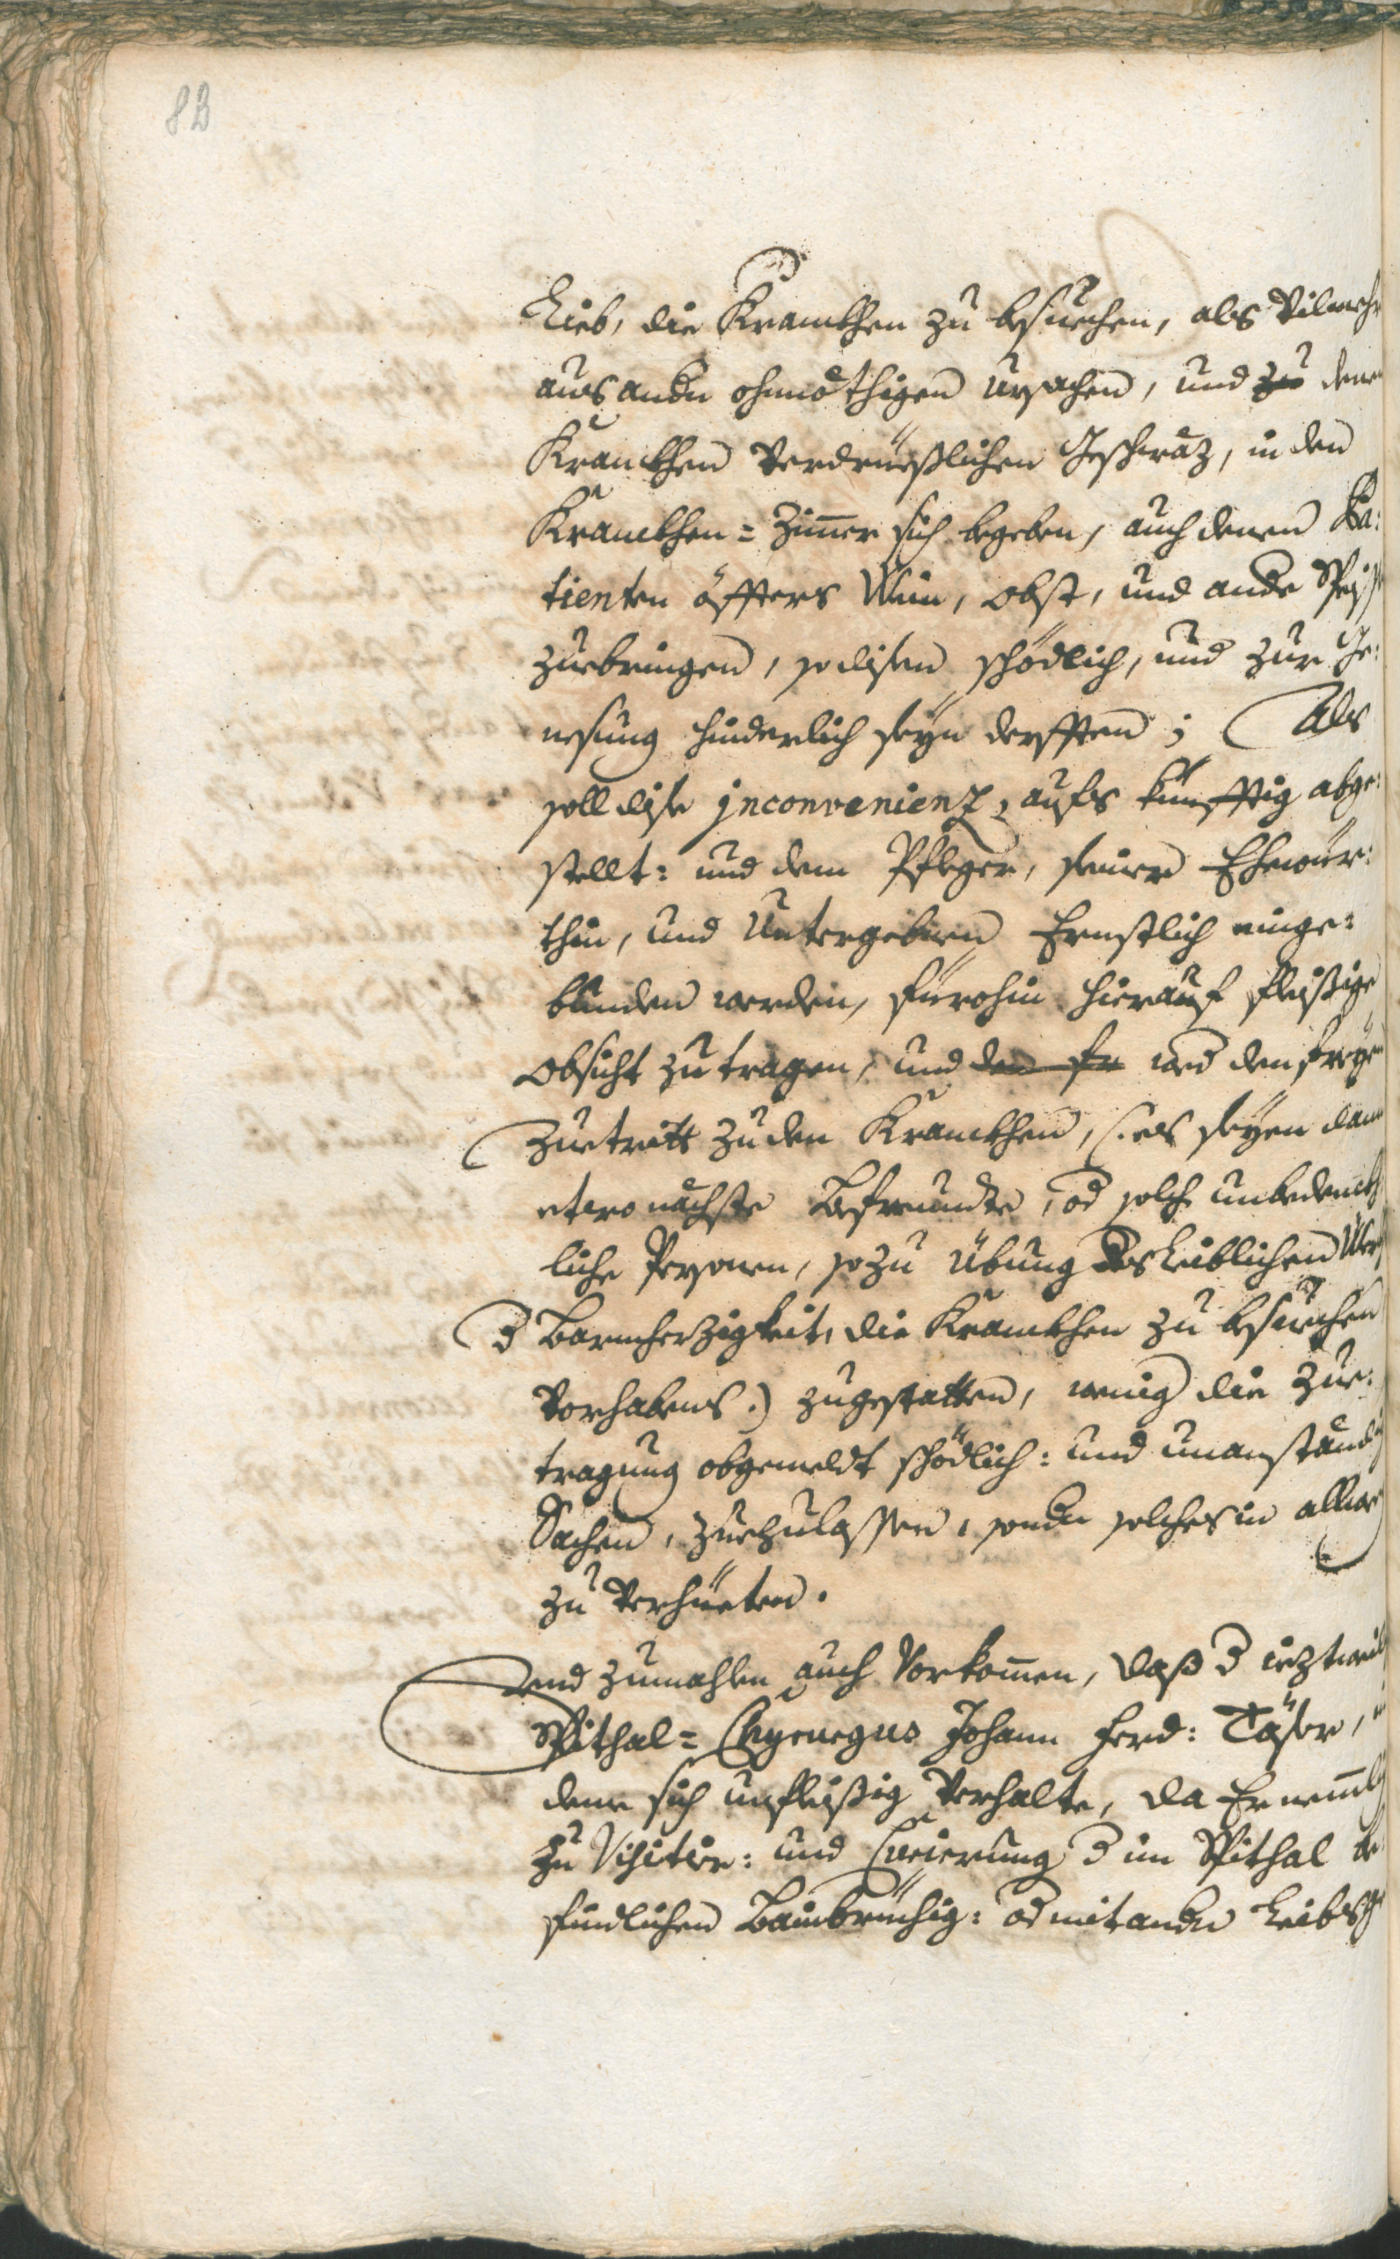 82
Lieb, die Kranckhen zu besuechen, als Vilmehr
aus andn ohnnöthigen ursachen, und zu denen
Kranckhen Verdrüeßlichen Geschwäz, in den
Kranckhen= Zim̄er sich begeben, auch denen Pa:
tienten öffters Wein, Obst, und ande Speis
zuebringen, so disen schödlich, und zur Ge:
nesung hinderlich seyn derfften; Als
soll dise jnconvenienz, aufs künfftig abge:
stellt: und dem Pfleger, seiner Ehewür:
thin, und Untergebnen Ernstlich einge:
bunden werden, fürohin hierauf fleißige
Obsicht zu tragen, und den fr wed den freyen
Zuetritt zu den Kranckhen, (: es seyen dann
etwo nächste Befreundte, od solch unbedenckh
liche Personen, so zu Übung des leiblichen Werch
d Barmherzigkeit, die Kranckhen zu besuechen
Vorhabens.) zugestatten, wenig die Zue:
tragung obgemeldt schödlich: und unanständig
Sachen, zuezulassen, sondn solches in allweg
zu Verhüeten.
Und zumahlen auch Vorkom̄en, daß d iezt weil
Spithal= Chyrurgus Johann Ferd: Täser,
deme sich unfleißig Verhalte, da Er nem̄lich
zu Visitir: und Curierung d im Spithal be
findlichen Bainbrüchig: od mit andn Leibsge